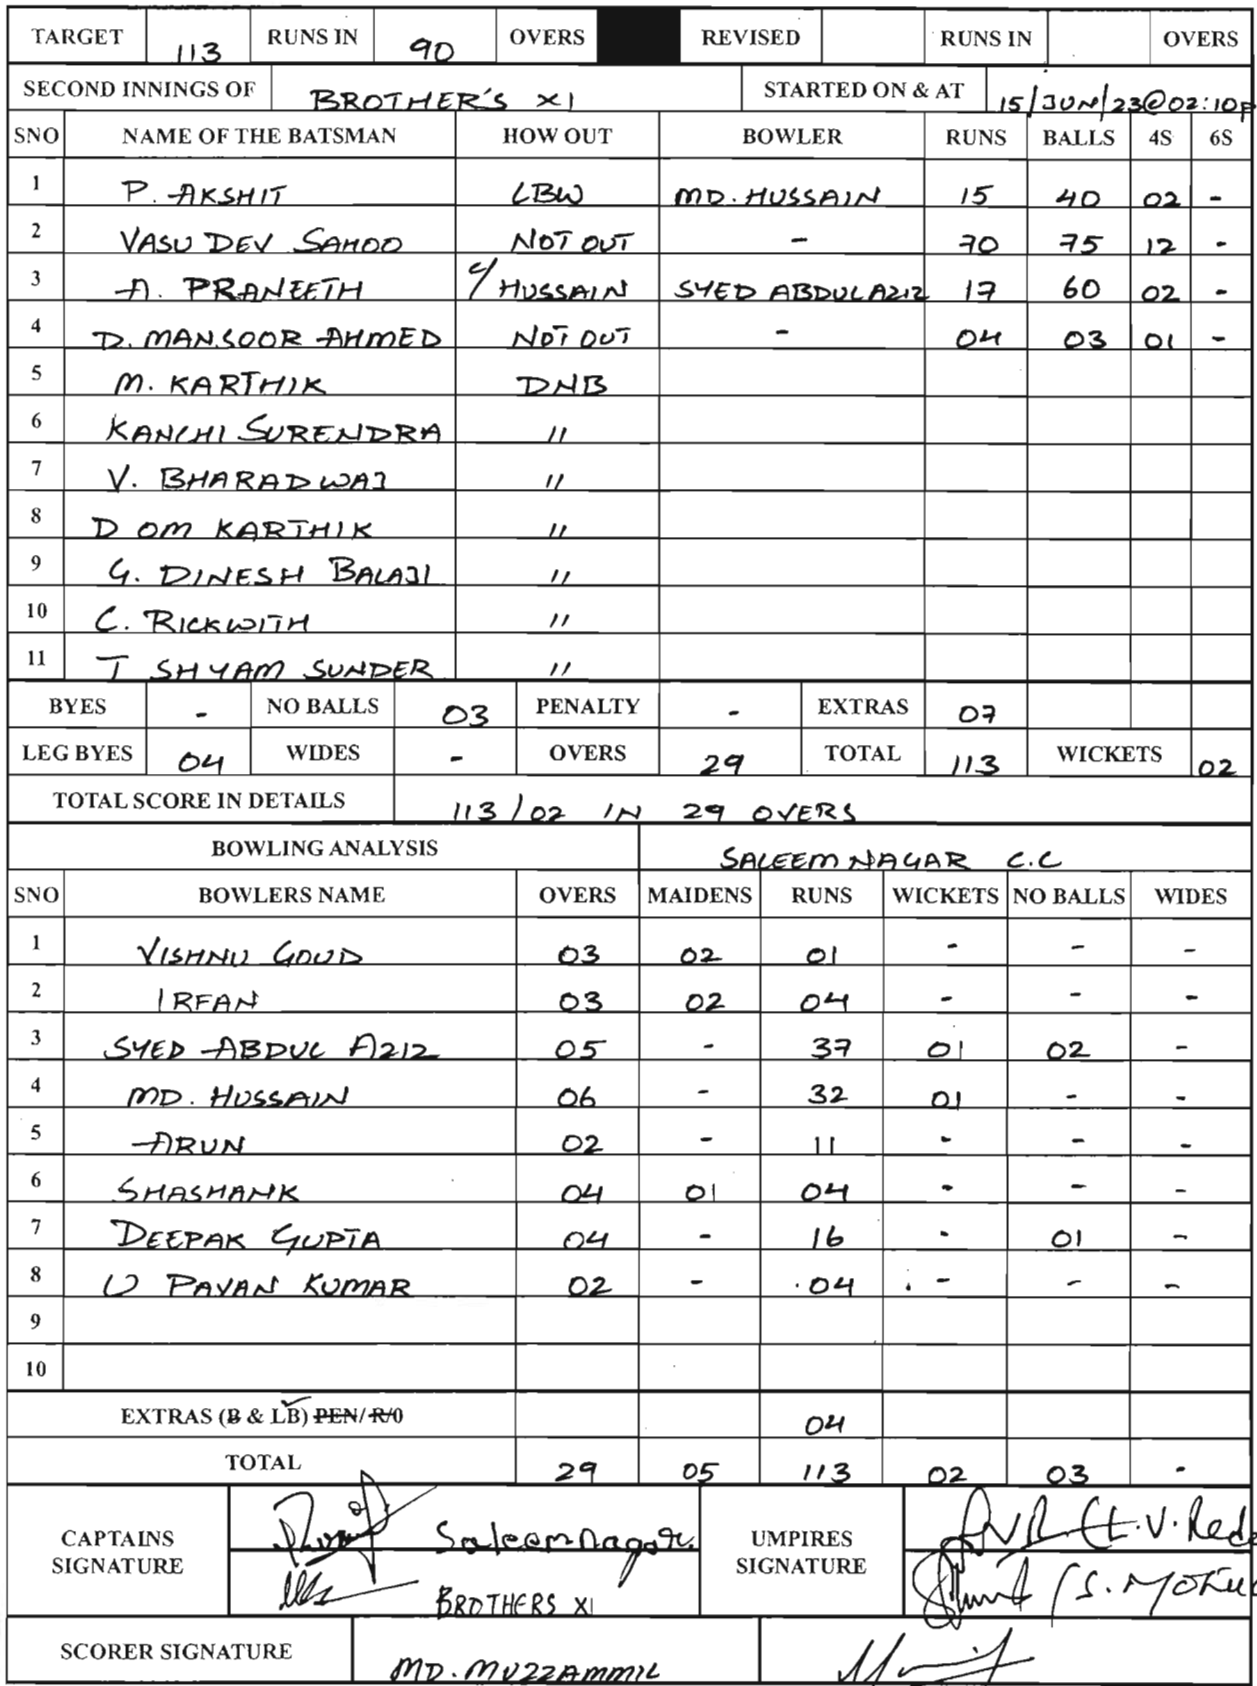 TARGET 113 RUNS IN 90 OVERS REVISED RUNS IN OVERS
SECOND INNINGS OF BROTHER'S XI STARTED ON & AT 15/JUN/23@02:10P
SNO NAME OF THE BATSMAN HOW OUT BOWLER RUNS BALLS 4S 6S
1 P. AKSHIT LBW MD. HUSSAIN 15 40 02 -
2 VASU DEV SAHOO NOT OUT - 70 75 12 -
3 A. PRANEETH c/ HUSSAIN SYED ABDUL AZIZ 17 60 02 -
4 D. MANSOOR AHMED NOT OUT - 04 03 01 -
5 M. KARTHIK DNB
6 KANCHI SURENDRA "
7 V. BHARADWAJ "
8 D OM KARTHIK "
9 G. DINESH BALAJI "
10 C. RICKWITH "
11 T SHYAM SUNDER "
BYES - NO BALLS 03 PENALTY - EXTRAS 07
LEG BYES 04 WIDES - OVERS 29 TOTAL 113 WICKETS 02
TOTAL SCORE IN DETAILS 113/02 IN 29 OVERS
BOWLING ANALYSIS SALEEM NAGAR C.C
SNO BOWLERS NAME OVERS MAIDENS RUNS WICKETS NO BALLS WIDES
1 VISHNU GOUD 03 02 01 - - -
2 IRFAN 03 02 04 - - -
3 SYED ABDUL AZIZ 05 - 37 01 02 -
4 MD. HUSSAIN 06 - 32 01 - -
5 ARUN 02 - 11 - - -
6 SHASHANK 04 01 04 - - -
7 DEEPAK GUPTA 04 - 16 - 01 -
8 U PAVAN KUMAR 02 - 04 - - -
9
10
EXTRAS (B & LB) PEN/ R/0 04
TOTAL 29 05 113 02 03 -
CAPTAINS SIGNATURE Saleemnagar UMPIRES SIGNATURE
BROTHERS XI
SCORER SIGNATURE MD. MUZZAMMIL